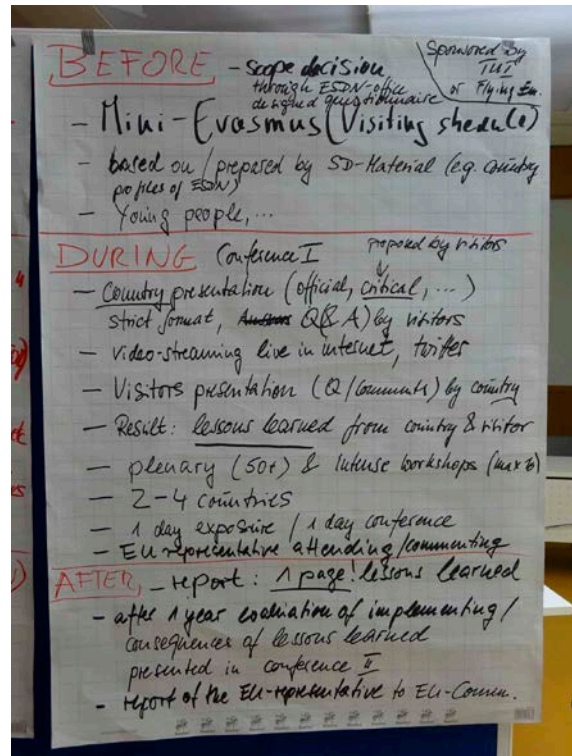 BEFORE - scope decision
through ESDN-office
designed questionnaire
Sponsored by
TUI
or Flying Em.
- Mini-Erasmus (Visiting shedule)
- based on / prepared by SD-Material (e.g. country
profiles of ESDN)
- Young people, ...
DURING Conference I
proposed by visitors
- Country presentation (official, critical, ...)
strict format, Q(& A) by visitors
- video-streaming live in internet, twitter
- Visitors presentation (Q/comments) by country
- Result: lessons learned from country & visitor
- plenary (50+) & intense workshops (max 6)
- 2-4 countries
- 1 day exposure / 1 day conference
- EU representative attending/commenting
AFTER - report: 1 page! lessons learned
- after 1 year evaluation of implementing /
consequences of lessons learned
presented in conference II
- report of the EU-representative to EU-Comm.